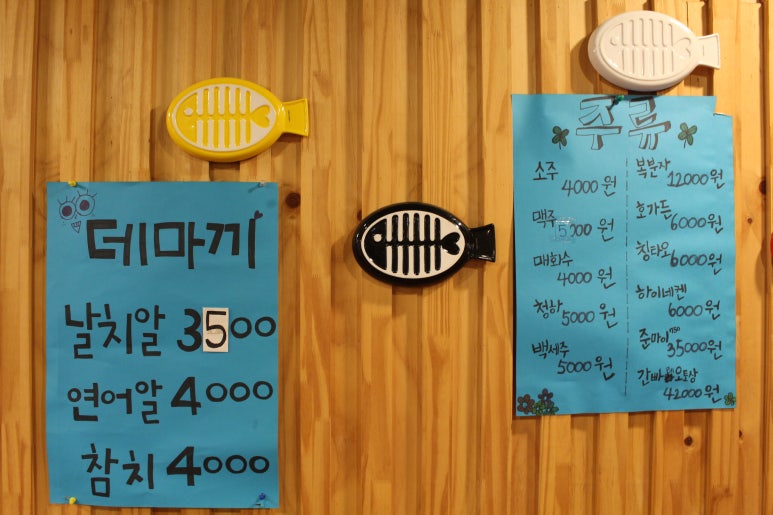 데마끼
날치알 3500
연어알 4000
참치 4000
주류
소주 4000원
맥주 5000원
매화수 4000원
청하 5000원
백세주 5000원
복분자 12000원
호가든 6000원
칭타오 6000원
하이네켄 6000원
준마이 750 35000원
간빠레 오토상 42000원